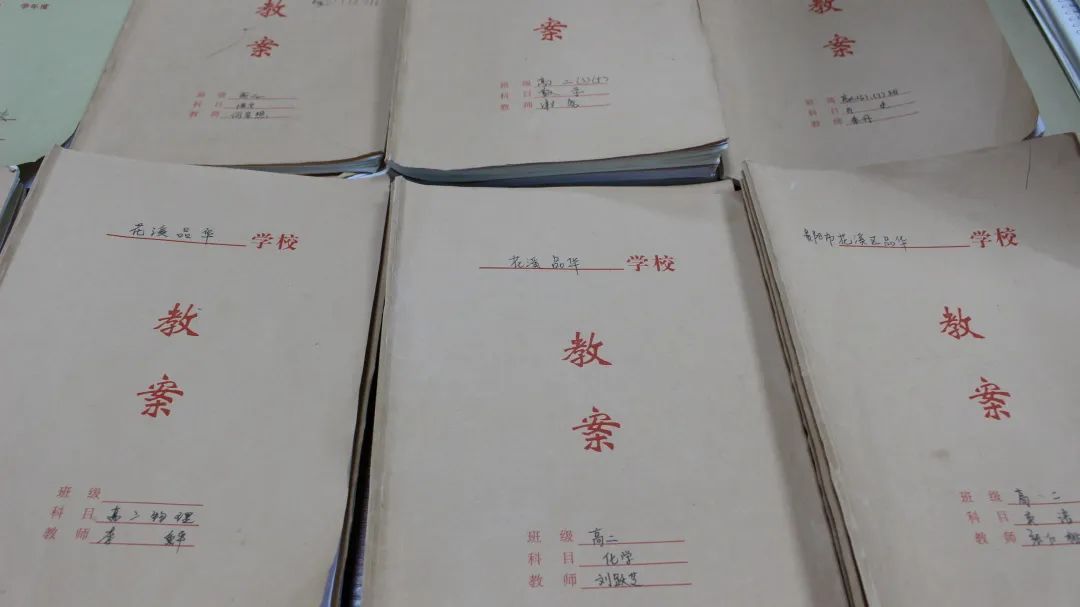 学年度
教
案
班 级 高二
科 目
教 师
案
班 级 高二
科 目 数学
教 师
教
案
班 级
科 目
教 师
花溪品华学校
教
案
班 级
科 目 高二物理
教 师 李
花溪品华学校
教
案
班 级 高二
科 目 化学
教 师 刘跃芝
贵阳市花溪区品华学校
教
案
班 级 高二
科 目 英语
教 师 张仁